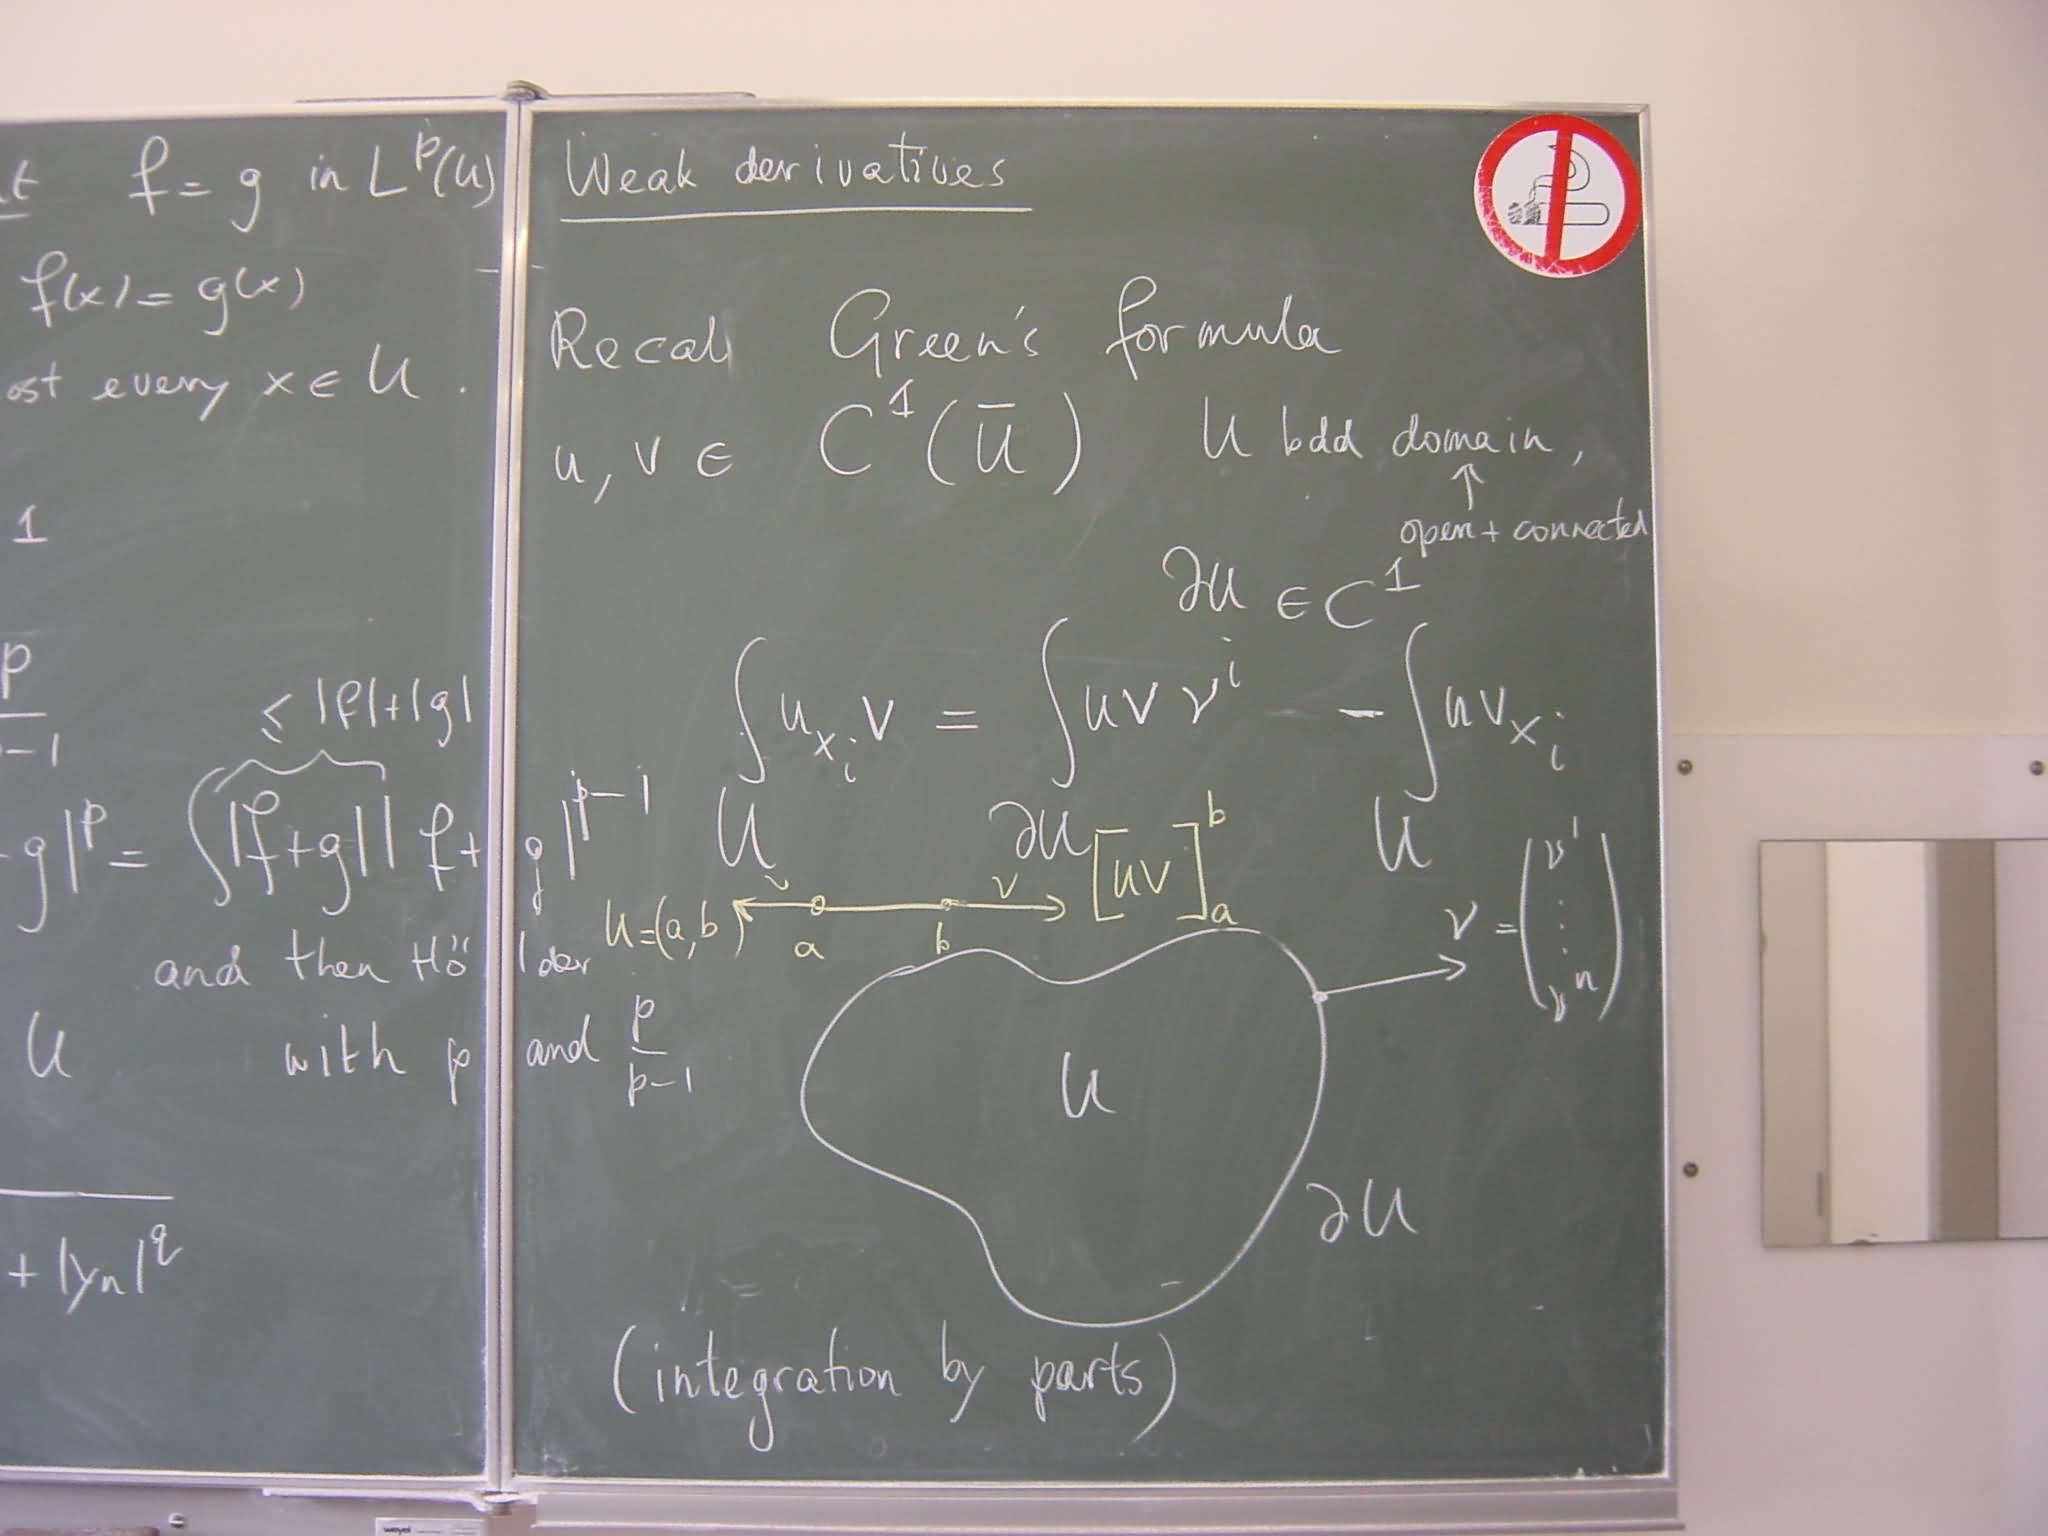 f = g in L^p(U)
f(x) = g(x)
every x ∈ U .
1
p
-1
≤ |f|+|g|
g|^p = ∫|f+g| |f+g|^{p-1}
and then Hölder
U with p and p/(p-1)
+ |y_n|^q
Weak derivatives
Recall Green's formula
u, v ∈ C^1(Ū) U bdd domain,
↑
open + connected
∂U ∈ C^1
∫_U u_{x_i} v = ∫_{∂U} u v ν^i - ∫_U u v_{x_i}
[uv]_a^b
U=(a,b) ν a b ν
ν = (ν^1 ⋮ ν^n)
U
∂U
(integration by parts)